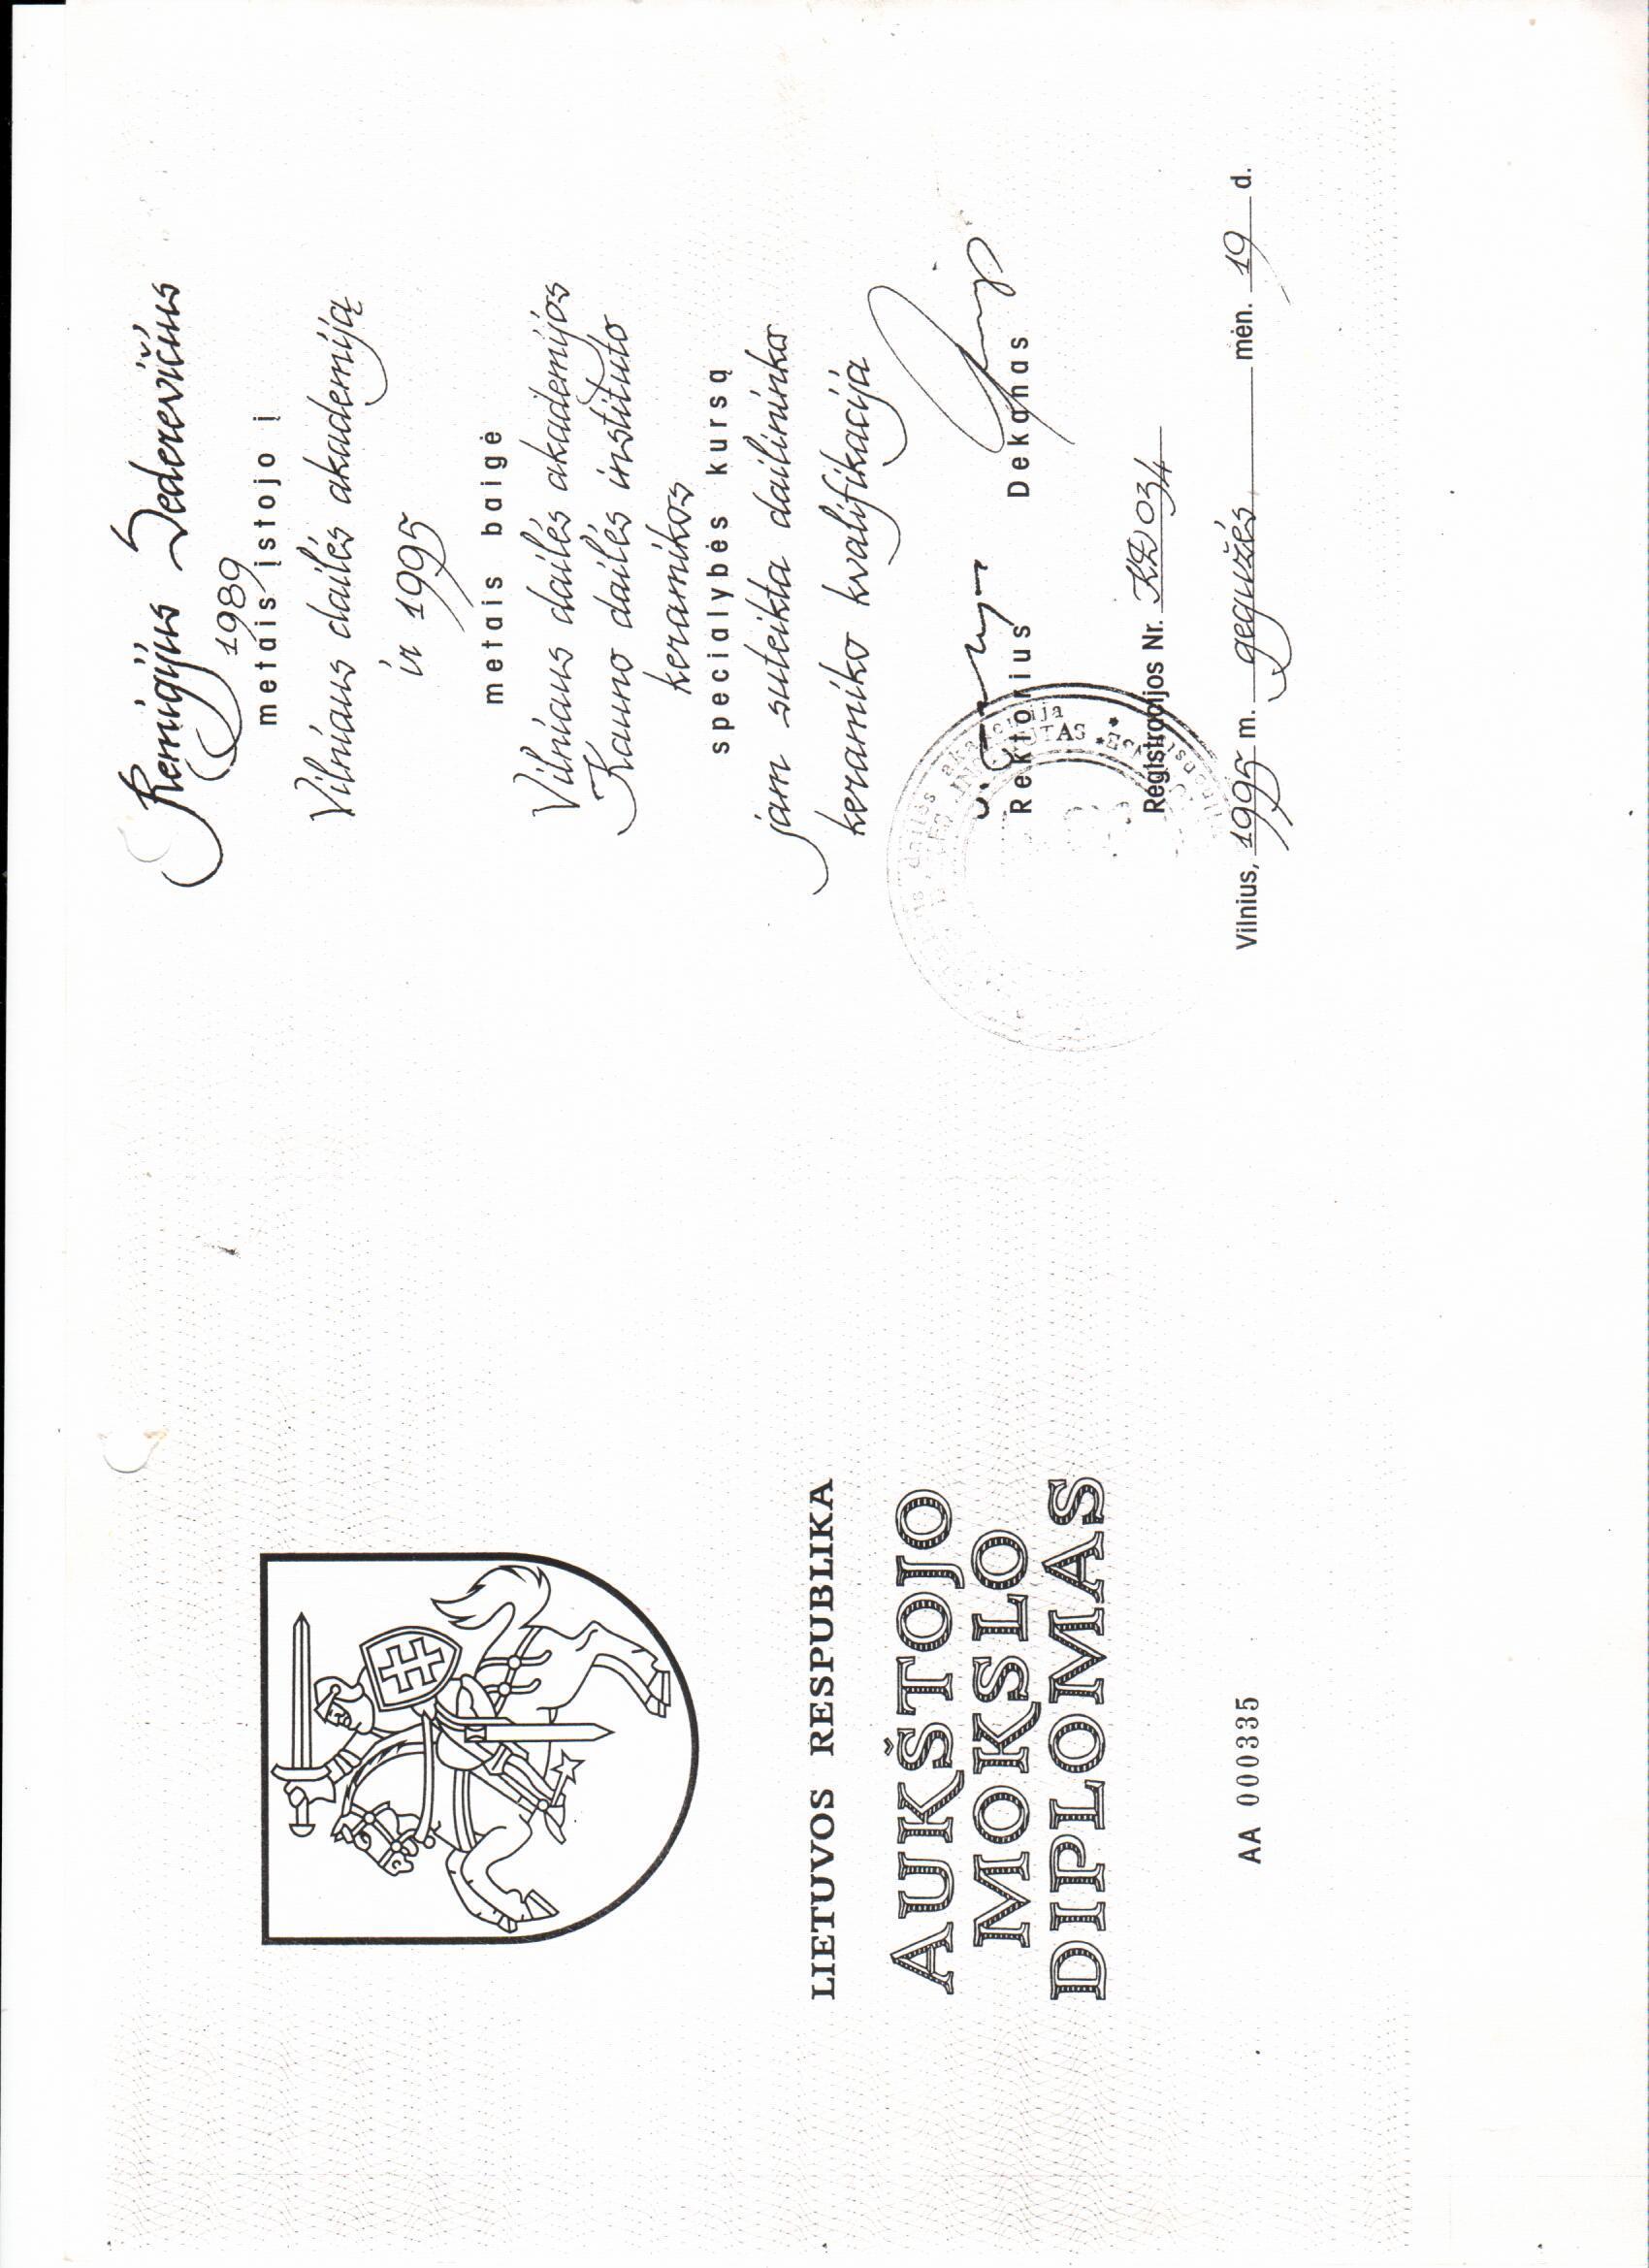 LIETUVOS RESPUBLIKA
AUKŠTOJO
MOKSLO
DIPLOMAS
AA 000335
Remigijus Sederevičius
1989
metais įstojo į
Vilniaus dailės akademiją
ir 1995
metais baigė
Vilniaus dailės akademijos
Kauno dailės instituto
keramikos
specialybės kursą
jam suteikta dailininko
keramiko kvalifikacija
Rektorius Dekanas
Registracijos Nr. KD 034
Vilnius, 1995 m. gegužės mėn. 19 d.